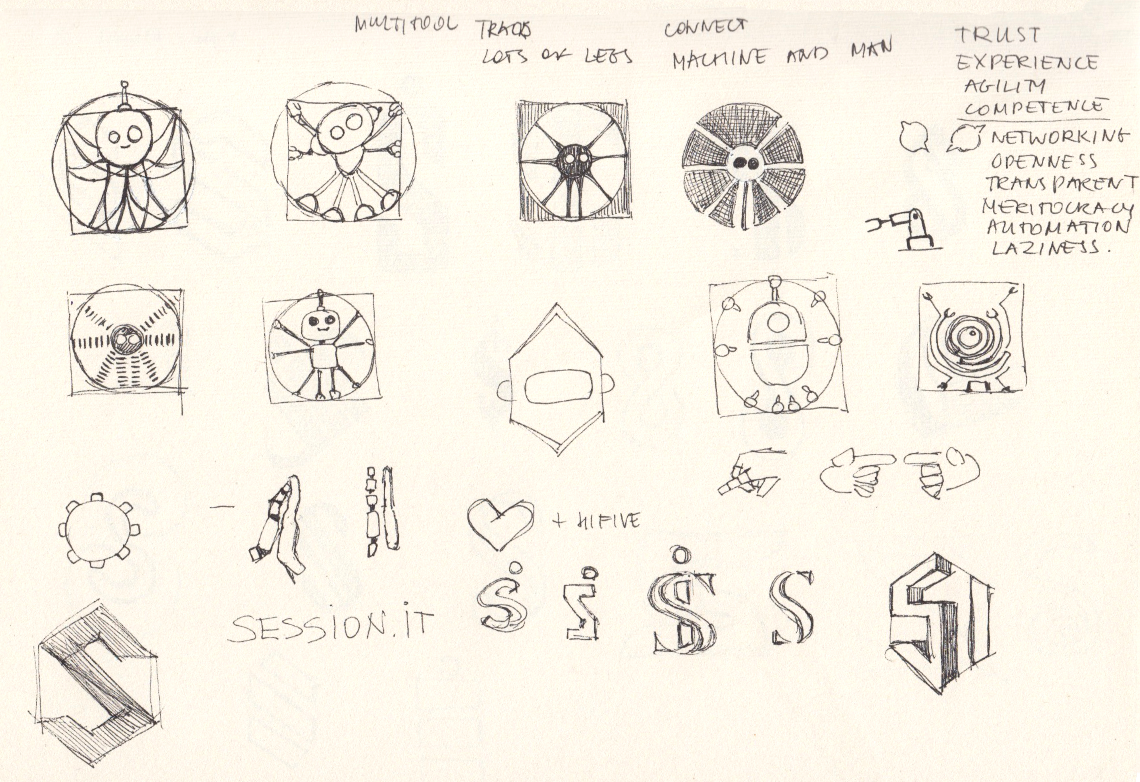 MULTITOOL
TRACKS
LOTS OF LEGS
CONNECT
MACHINE AND MAN
TRUST
EXPERIENCE
AGILITY
COMPETENCE
NETWORKING
OPENNESS
TRANSPARENT
MERITOCRACY
AUTOMATION
LAZINESS.
+ HIFIVE
SESSION.IT
S
SI